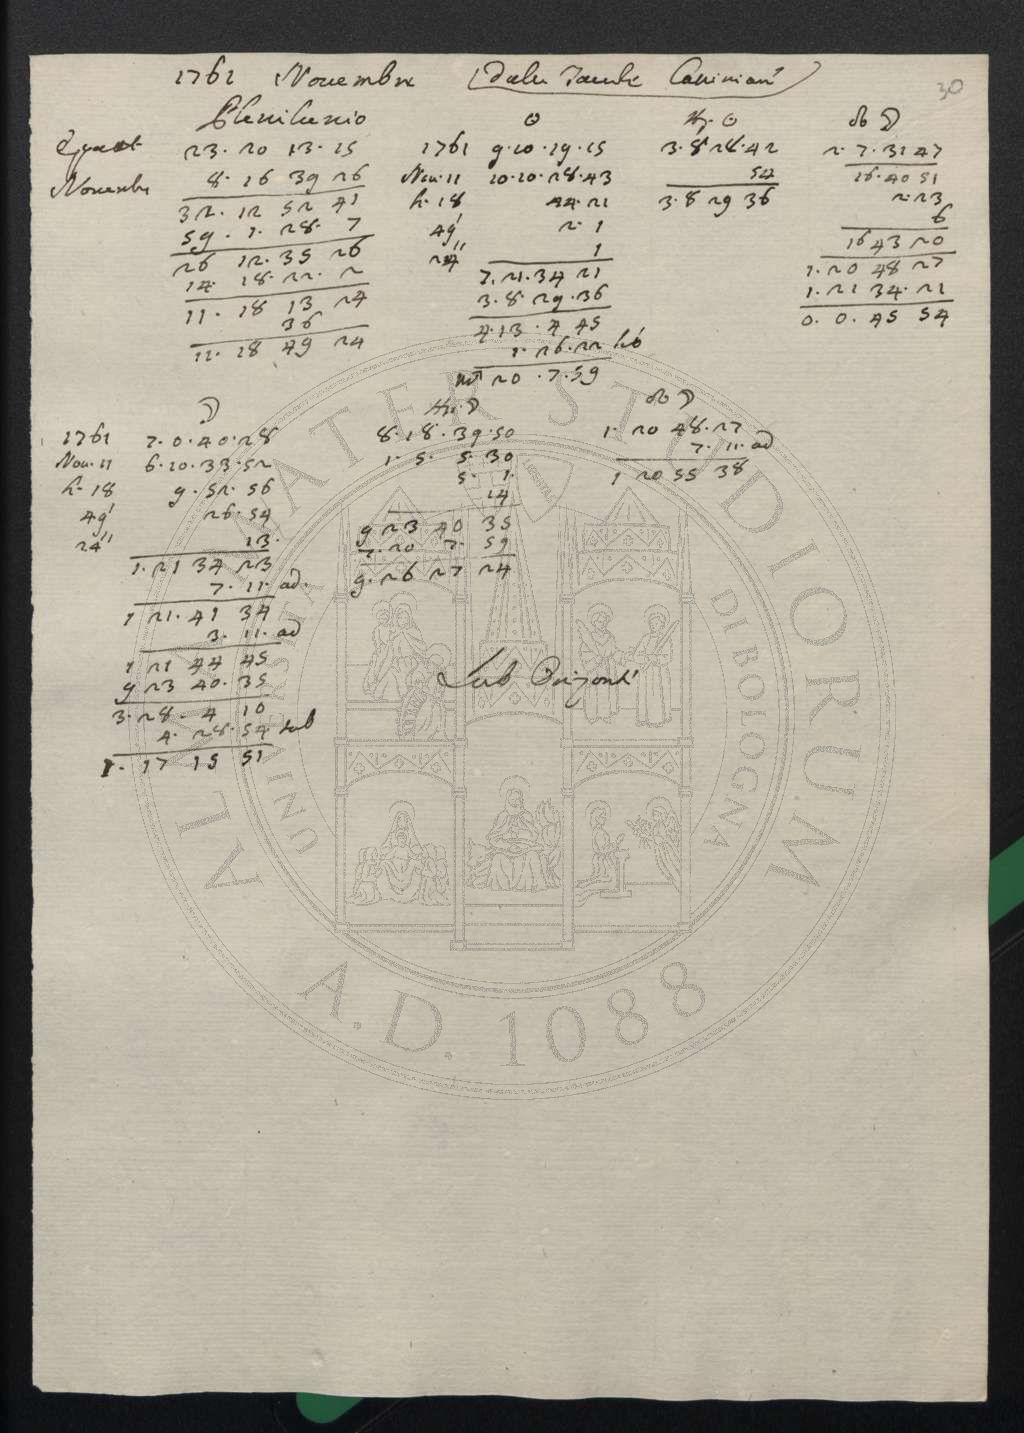 1761 Novembre (Dalle Tavole Cassiniane)
30
Plenilunio
Epact 23. 20 13. 15
Novembre 8. 16 39 26
32. 12 52 41
59. 1. 28. 7
26 12. 35 26
14. 18. 22. 2
11. 18 13 24
36
11. 18 49 24
☉
1761 9. 10. 19. 15
Nov. 11 10. 10. 28. 43
h. 18 44. 21
49' 2. 1
24'' 1
7. 21. 34 21
3. 8. 29. 36
4. 13. 4 45
1. 26. 22 sub
20. 7. 59
☉
3. 8 28. 42
54
3. 8 29 36
☊ ☽
2. 7. 31 47
16. 40 51
2. 23
6
16 43 20
1. 20 48 27
1. 21 34. 21
0. 0. 45 54
☽
1761 7. 0. 40. 28
Nov. 11 6. 10. 33. 52
h. 18 9. 52. 56
49' 26. 54
24'' 13.
1. 21 34 23
7. 11. ad.
1 21. 41 34
3. 11. ad
1 21 44 45
9 23 40. 35
3. 28. 4 10
4. 28. 54 sub
1. 17 15 51
☽
8. 18. 39. 50
1. 5. 5. 30
5. 1.
14
9 23 40 35
20 7. 59
9. 26 27 24
☊ ☽
1. 20 48. 27
7. 11. ad
1 20 55 38
Sub Orizonte
ALMA MATER STUDIORUM
A.D. 1088
UNIVERSITÀ DI BOLOGNA